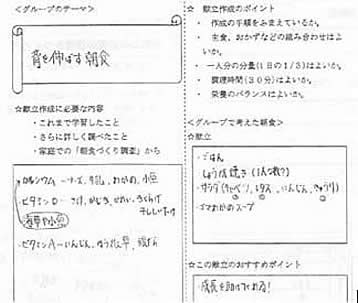 <グループのテーマ>
背を伸ばす朝食
☆献立作成に必要な内容
・これまで学習したこと
・さらに詳しく調べたこと
・家庭での「朝食づくり調査」から
・カルシウム…チーズ、牛乳、わかめ、小魚
・ビタミンD…さけ、かじき、きくらげ
干ししいたけ
海草や小魚
・ビタミンA…にんじん、ほうれん草
☆ 献立作成のポイント
・ 作成の手順をふまえているか。
・ 主食、おかずなどの組み合わせはよいか。
・ 一人分の分量(1日の1/3)はよいか。
・ 調理時間(30分)はよいか。
・ 栄養のバランスによいか。
<グループで考えた朝食>
☆献立
・ごはん
しょうが焼き(1人な数?)
・サラダ(キャベツ、レタス、にんじん、きゅうり)
・ゴマわかめスープ
☆この献立のおすすめポイント
・成長を助けてくれる!